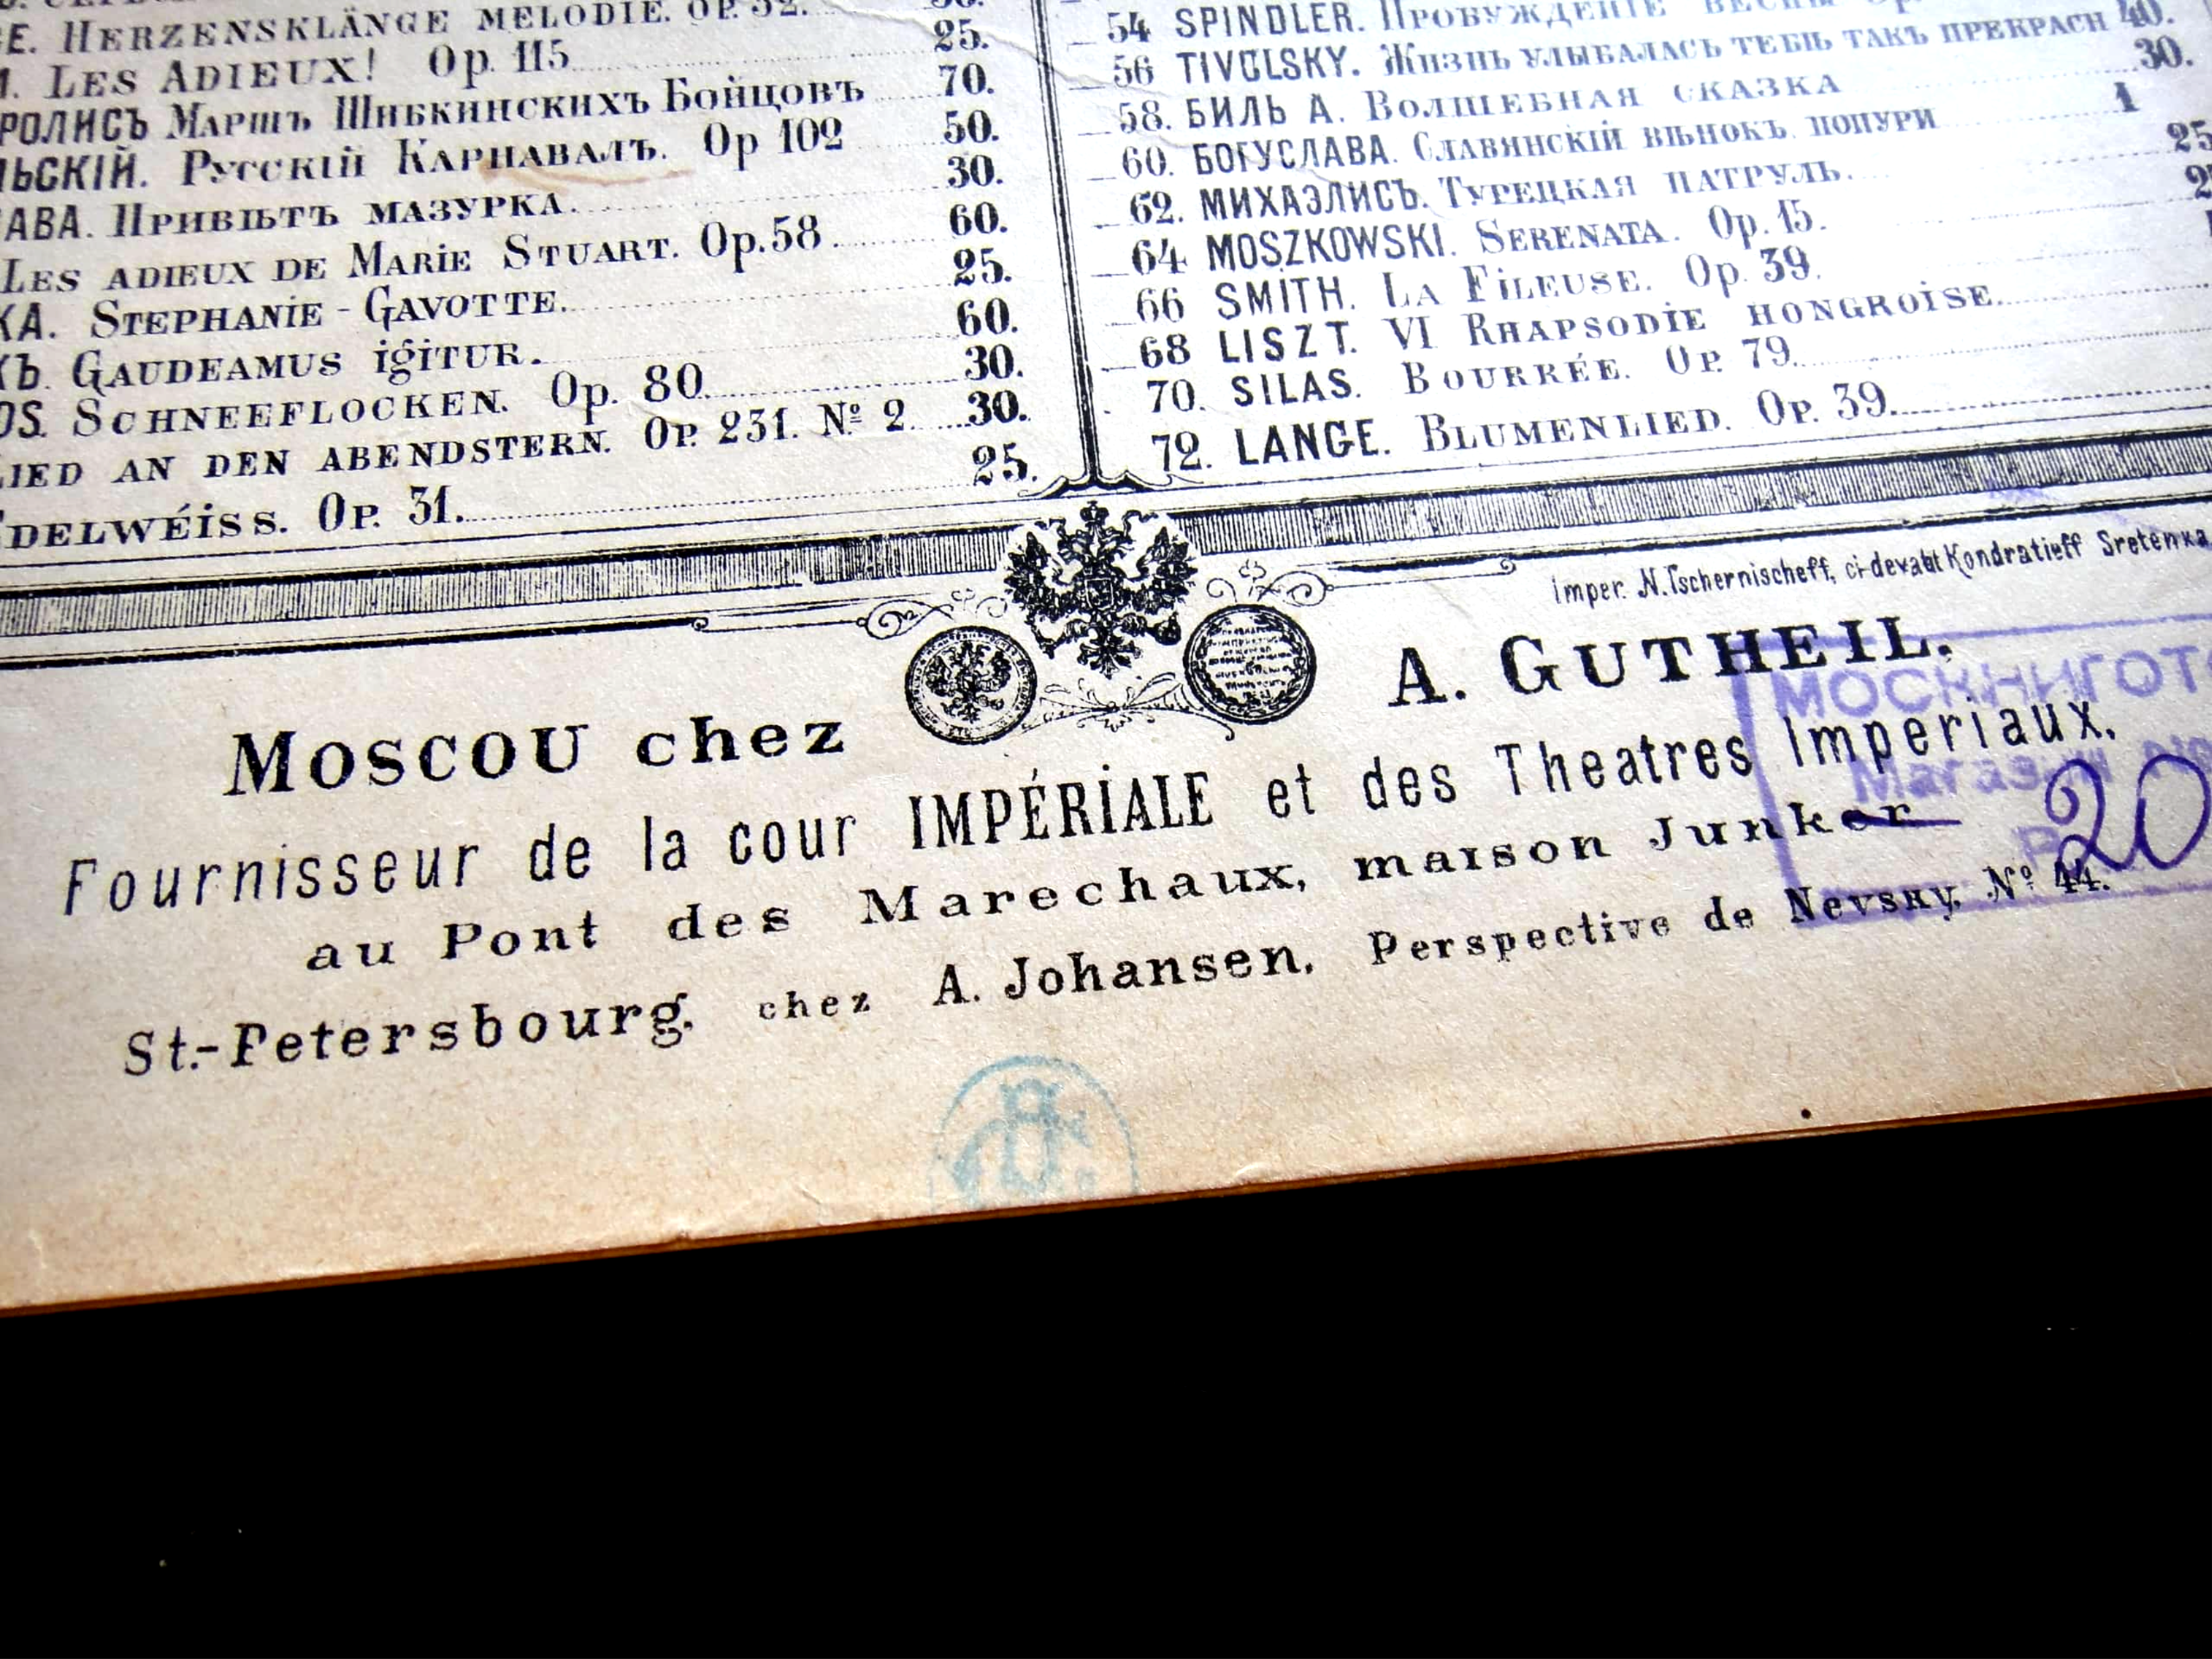 HERZENSKLÄNGE MELODIE. OP. 52.
LES ADIEUX! Op. 115 25.
МАРШЪ ШИБКИНСКИХЪ БОЙЦОВЪ 70.
РУССКІЙ КАРНАВАЛЪ. Op 102 50.
ПРИВѢТЪ МАЗУРКА. 30.
LES ADIEUX DE MARIE STUART. Op. 58 60.
STEPHANIE - GAVOTTE. 25.
GAUDEAMUS IGITUR. 60.
SCHNEEFLOCKEN. Op. 80. 30.
LIED AN DEN ABENDSTERN. OP. 231. № 2. 30.
EDELWÉISS. OP. 31. 25.
54 SPINDLER. ПРОБУЖДЕНІЕ ВЕСНЫ
56 TIVOLSKY. ЖИЗНЬ УЛЫБАЛАСЬ ТЕБѢ ТАКЪ ПРЕКРАСН 40.
58. БИЛЬ А. ВОЛШЕБНАЯ СКАЗКА 30.
60. БОГУСЛАВА. СЛАВЯНСКІЙ ВѢНОКЪ. ПОПУРИ 1
62. МИХАЭЛИСЪ. ТУРЕЦКАЯ ПАТРУЛЬ.
64 MOSZKOWSKI. SERENATA. Op. 15.
66 SMITH. LA FILEUSE. Op. 39.
68 LISZT. VI RHAPSODIE HONGROISE.
70. SILAS. BOURRÉE. OP. 79.
72. LANGE. BLUMENLIED. OP. 39.
Imper. N. Tschernischeff, ci-devant Kondratieff Sretenka
MOSCOU chez A. GUTHEIL.
Fournisseur de la cour IMPÉRIALE et des Theatres Imperiaux.
au Pont des Marechaux, maison Junker
St.-Petersbourg, chez A. Johansen, Perspective de Nevsky, № 44.
20